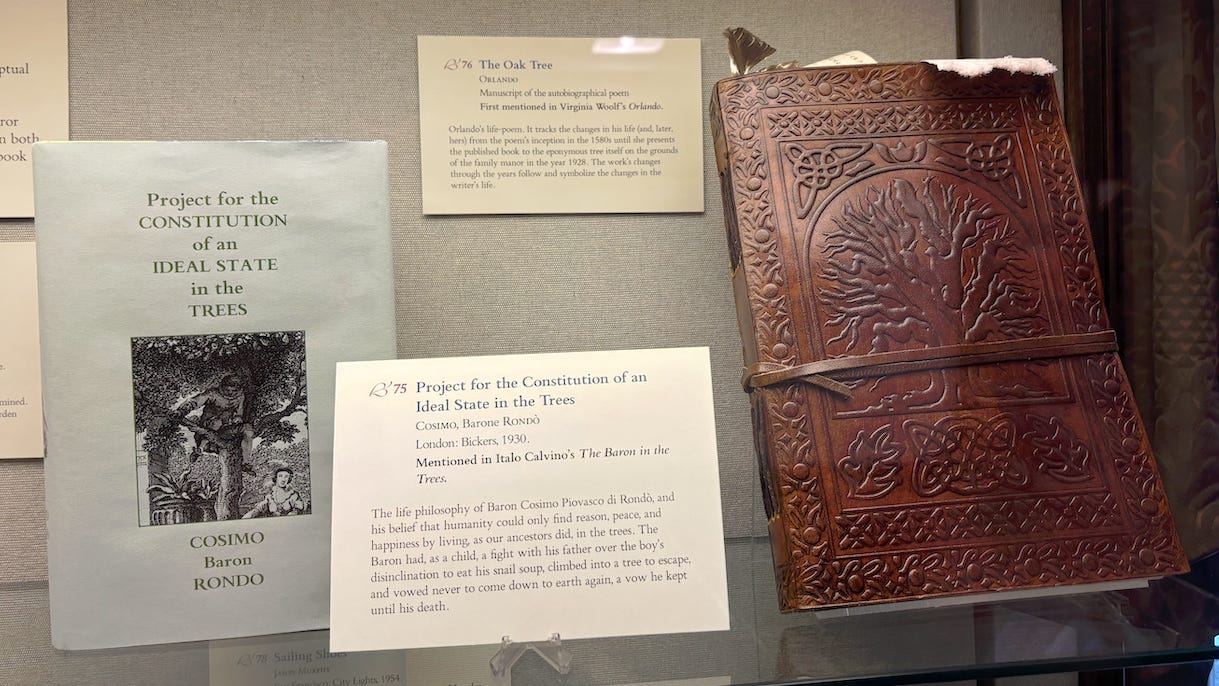 ptual
ror
n both
book
e.
mined.
rden
Project for the
CONSTITUTION
of an
IDEAL STATE
in the
TREES
COSIMO
Baron
RONDO
76 The Oak Tree
ORLANDO
Manuscript of the autobiographical poem
First mentioned in Virginia Woolf's Orlando.
Orlando's life-poem. It tracks the changes in his life (and, later,
hers) from the poem's inception in the 1580s until she presents
the published book to the eponymous tree itself on the grounds
of the family manor in the year 1928. The work's changes
through the years follow and symbolize the changes in the
writer's life.
75 Project for the Constitution of an
Ideal State in the Trees
COSIMO, Barone RONDÒ
London: Bickers, 1930.
Mentioned in Italo Calvino's The Baron in the
Trees.
The life philosophy of Baron Cosimo Piovasco di Rondò, and
his belief that humanity could only find reason, peace, and
happiness by living, as our ancestors did, in the trees. The
Baron had, as a child, a fight with his father over the boy's
disinclination to eat his snail soup, climbed into a tree to escape,
and vowed never to come down to earth again, a vow he kept
until his death.
78 Sailing Shoes
City Lights, 1954.